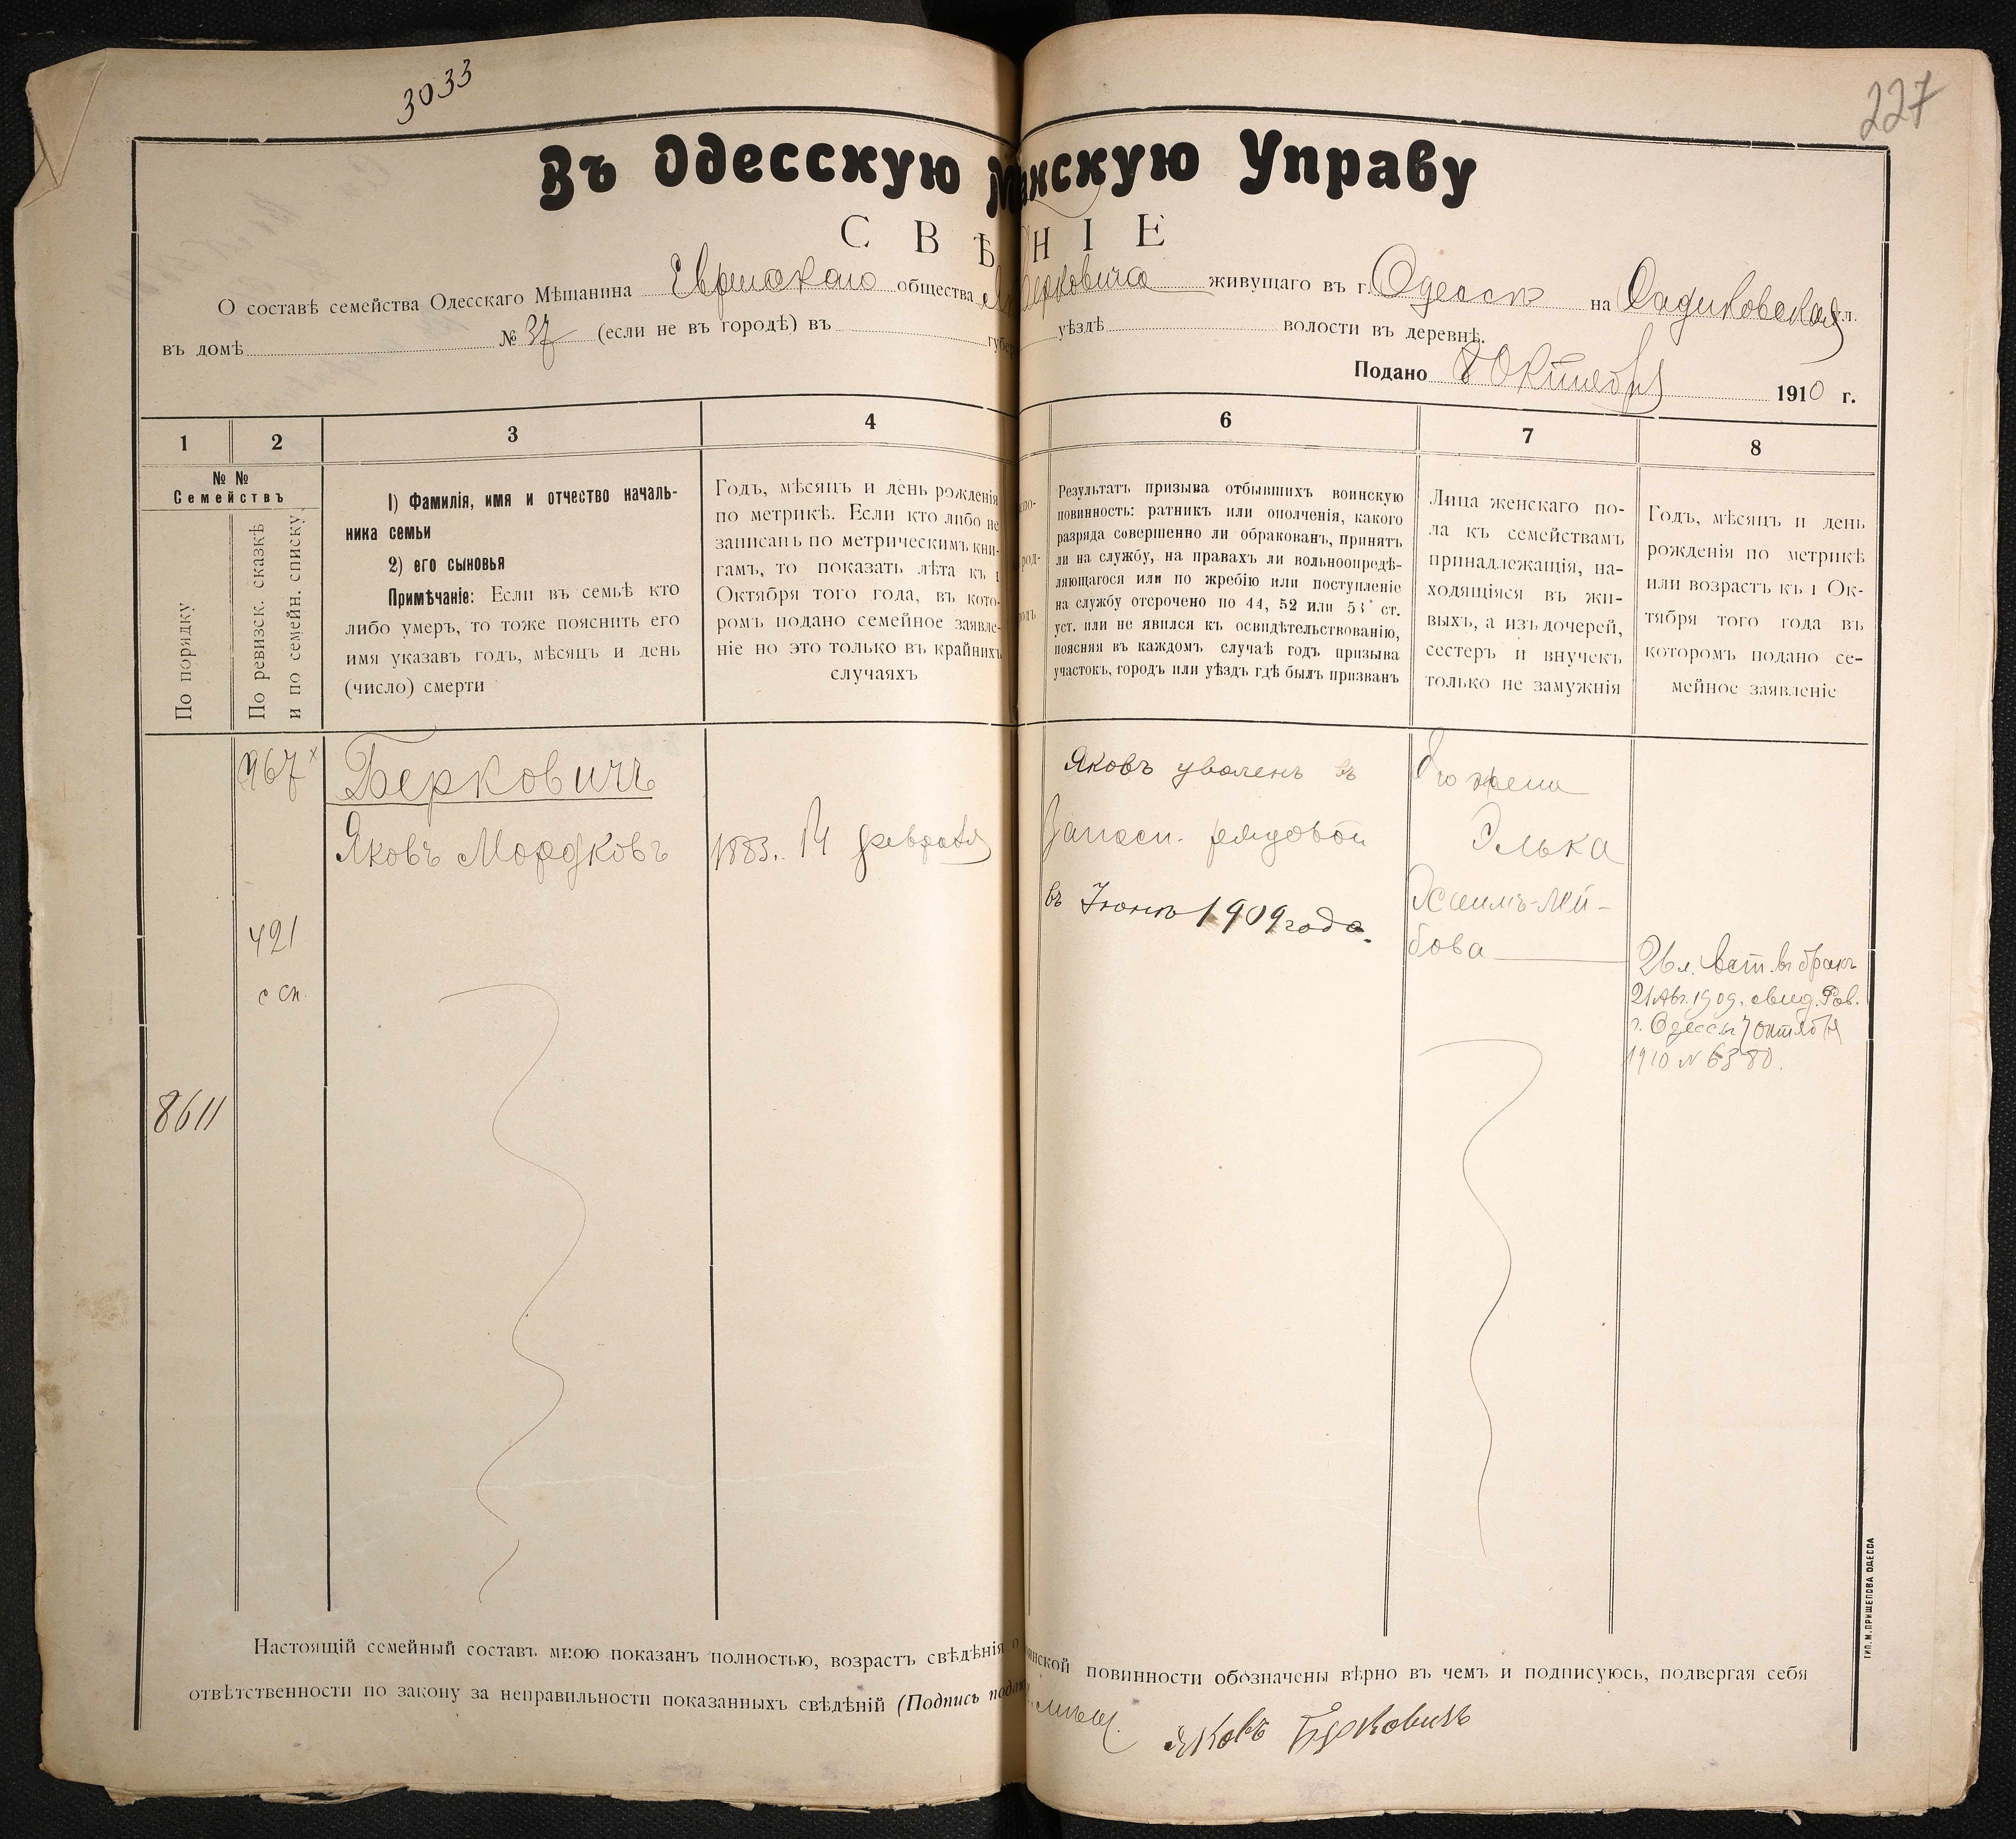 3033
227
Въ Одесскую М анскую Управу
СВѢ НІЕ
О составѣ семейства Одесскаго Мѣщанина Еврейскаго общества Як Берковича живущаго въ г. Одессѣ на Садиковская ул.
въ домѣ № 37 (если не въ городѣ) въ губер уѣздѣ волости въ деревнѣ.
Подано 8 Октября 1910 г.
1 2 3 4 6 7 8
№ №
Семействъ
По порядку
По ревизск. сказкѣ
и по семейн. списку
1) Фамилія, имя и отчество началь-
ника семьи
2) его сыновья
Примѣчаніе: Если въ семьѣ кто
либо умеръ, то тоже пояснить его
имя указавъ годъ, мѣсяцъ и день
(число) смерти
Годъ, мѣсяцъ и день рожденія
по метрикѣ. Если кто либо не
записанъ по метрическимъ кни-
гамъ, то показать лѣта къ 1
Октября того года, въ кото-
ромъ подано семейное заявле-
ніе но это только въ крайнихъ
случаяхъ
Результатъ призыва отбывшихъ воинскую
повинность: ратникъ или ополченія, какого
разряда совершенно ли обракованъ, принятъ
ли на службу, на правахъ ли вольноопредѣ-
ляющагося или по жребію или поступленіе
на службу отсрочено по 44, 52 или 53 ст.
уст. или не явился къ освидѣтельствованію,
поясняя въ каждомъ случаѣ годъ призыва
участокъ, городъ или уѣздъ гдѣ былъ призванъ
Лица женскаго по-
ла къ семействамъ
принадлежащія, на-
ходящіяся въ жи-
выхъ, а изъ дочерей,
сестеръ и внучекъ
только не замужнія
Годъ, мѣсяцъ и день
рожденія по метрикѣ
или возрастъ къ 1 Ок-
тября того года въ
которомъ подано се-
мейное заявленіе
967 х
421
с сп.
8611
Берковичъ
Яковъ Мордковъ
1883. 14 февраля
Яковъ уволенъ въ
Запасн. рядовой
въ Іюнѣ 1909 года.
Его жена
Элька
Хаимъ-Лей-
бова
26 л. вст. въ бракъ
21 Авг. 1909. свид. Рав.
г. Одессы 7 октября
1910 № 6380.
Настоящій семейный составъ мною показанъ полностью, возрастъ свѣдѣнія о инской повинности обозначены вѣрно въ чемъ и подписуюсь, подвергая себя
отвѣтственности по закону за неправильности показанныхъ свѣдѣній (Подпись пода
Яковъ Берковичъ
ТИП. М. ПРИЩЕПОВА ОДЕССА